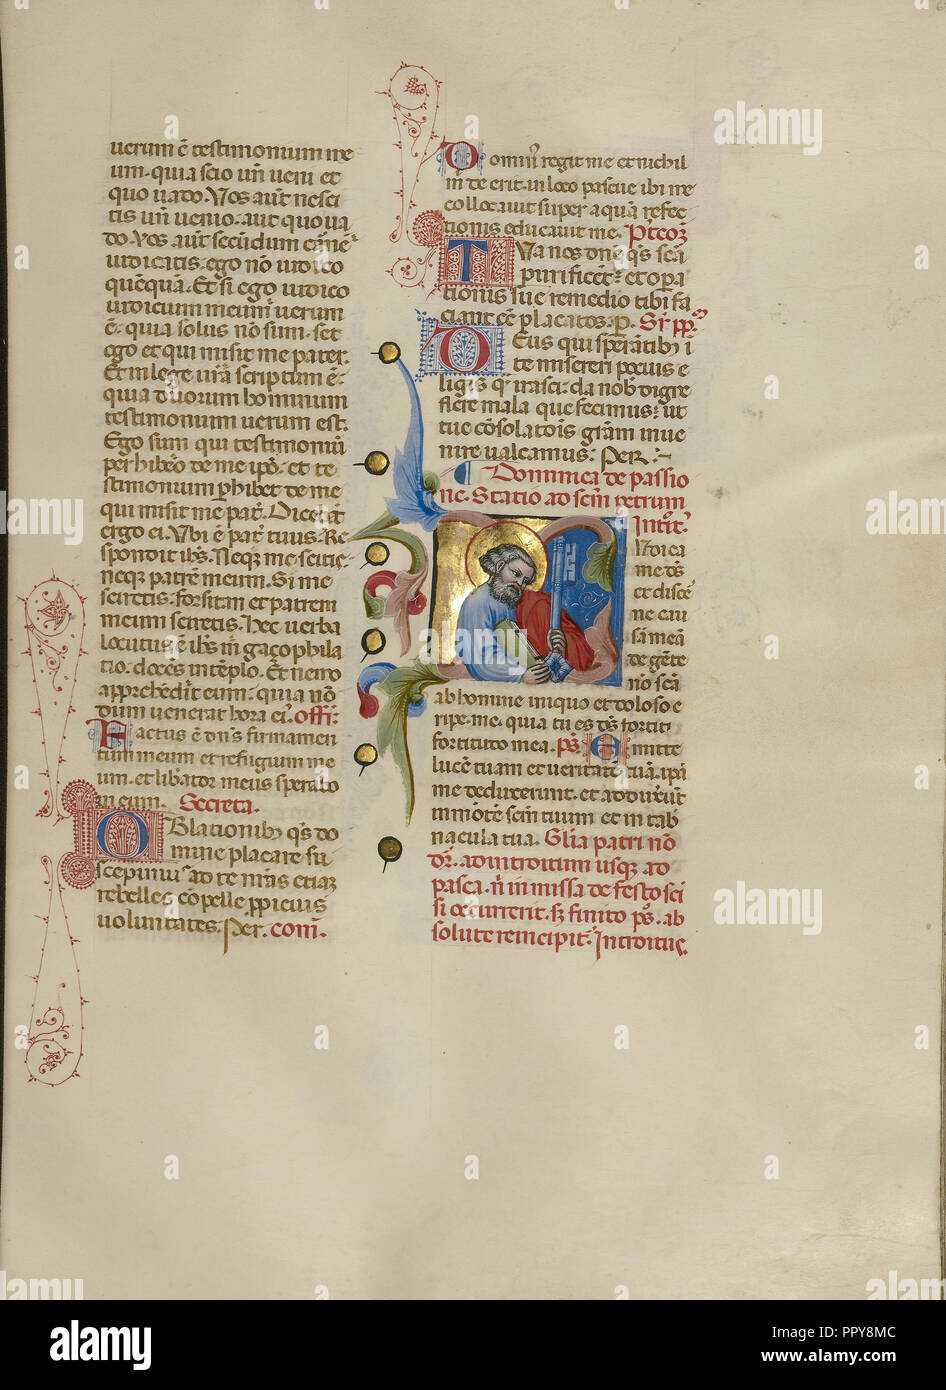 uerum ē testimonium me
um. quia scio uñ ueni et
quo uado. Vos aūt nesci
tis uñ uenio. aut quo ua
do. Vos aūt secūdum carnē
iudicatis. ego nō iudico
quēquā. Et si ego iudico
iudicium meum uerum
ē. quia solus nō sum. set
ego et qui misit me pater.
Et in lege urā scriptum ē.
quia duorum hominum
testimonium uerum est.
Ego sum qui testimoniū
perhibeo de me ipō. et te
stimonium phibet de me
qui misit me pat. Dicebāt
ergo ei. Ubi ē pat tuus. Re
spondit ihs. Neq me scitis
neq patrē meum. Si me
sciretis. forsitan et patrem
meum sciretis. Hec uerba
locutus ē ihs in gaçophila
tio. docēs in tēplo. Et nemo
apprehēdit eum. quia nō
dum uenerat hora ei. offi.
Factus ē dns firmamen
tum meum et refugium me
um. et libator meus sperabo
in eum. Secreta.
Oblationib qs do
mine placare su
sceptis. et ad te nrās etiā
rebelles cōpelle ppicius
uoluntates. Per. com.
Domin regit me et nichil
m deerit. in loco pascue ibi me
collocauit super aquā refec
tionis educauit me. Ptcoō
Tua nos dne qs scā
purificēt. et opa
tionis sue remedio tibi fa
ciant ee placatos. P. Sr pp
Deus qui speratib ī
te misereri pocius e
ligis q irasci. da nob digne
flere mala que fecimus. ut
tue cōsolatois gram inue
nire ualeamus. Per.
Dominica de passio
ne. Statio ad scm petrum
Introit.
Iudica
me ds
et discē
ne cau
sā meā
de gēte
nō scā
ab homine iniquo et doloso e
ripe me. quia tu es ds fortit
fortitudo mea. ps. Emitte
lucē tuam et ueritatē tuā. ipā
me deduxerunt. et adduxūt
in mōtē scm tuum et in tab
nacula tua. Glia patri nō
dr. ad introitum usq ad
pasca. n in missa de festo sci
si occurrerit. sz finito ps. ab
solute reincipit. Introitus.
alamy
Image ID: PPY8MC
www.alamy.com